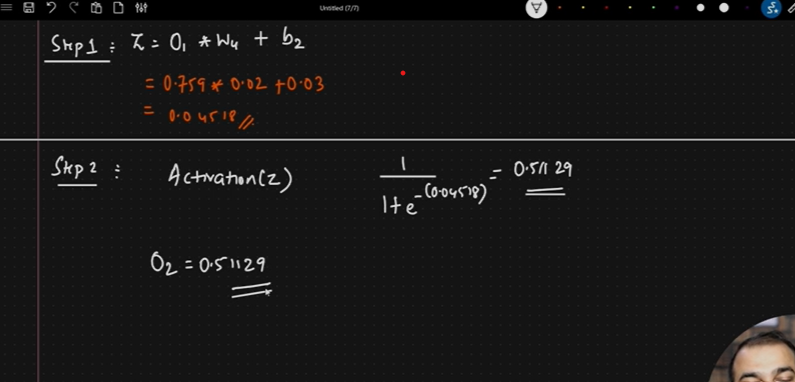 Untitled (7/7)
Step 1 : Z = O₁ * W₄ + b₂
= 0.759 * 0.02 + 0.03
= 0.04518 //
Step 2 : Activation(Z) 1 / 1 + e^-(0.04518) = 0.51129
O₂ = 0.51129